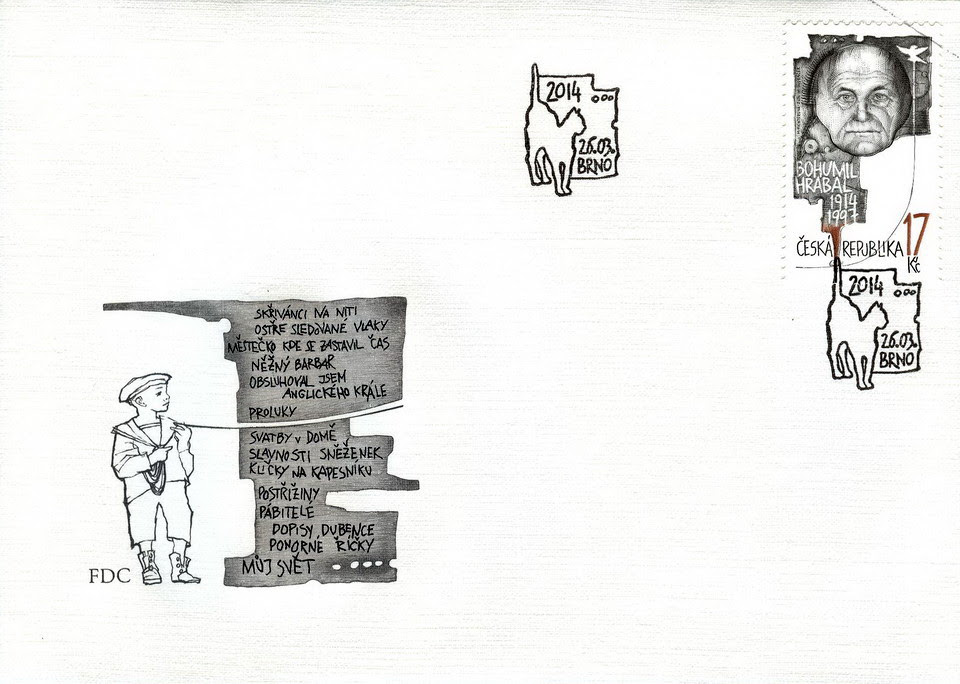 2014
26.03.
BRNO
BOHUMIL
HRABAL
1914
1997
ČESKÁ REPUBLIKA 17
Kč
2014
26.03.
BRNO
SKŘIVÁNCI NA NITI
OSTŘE SLEDOVANÉ VLAKY
MĚSTEČKO KDE SE ZASTAVIL ČAS
NĚŽNÝ BARBAR
OBSLUHOVAL JSEM
ANGLICKÉHO KRÁLE
PROLUKY
SVATBY V DOMĚ
SLAVNOSTI SNĚŽENEK
KLIČKY NA KAPESNÍKU
POSTŘIŽINY
PÁBITELÉ
DOPISY DUBENCE
PONORNÉ ŘÍČKY
MŮJ SVĚT
FDC